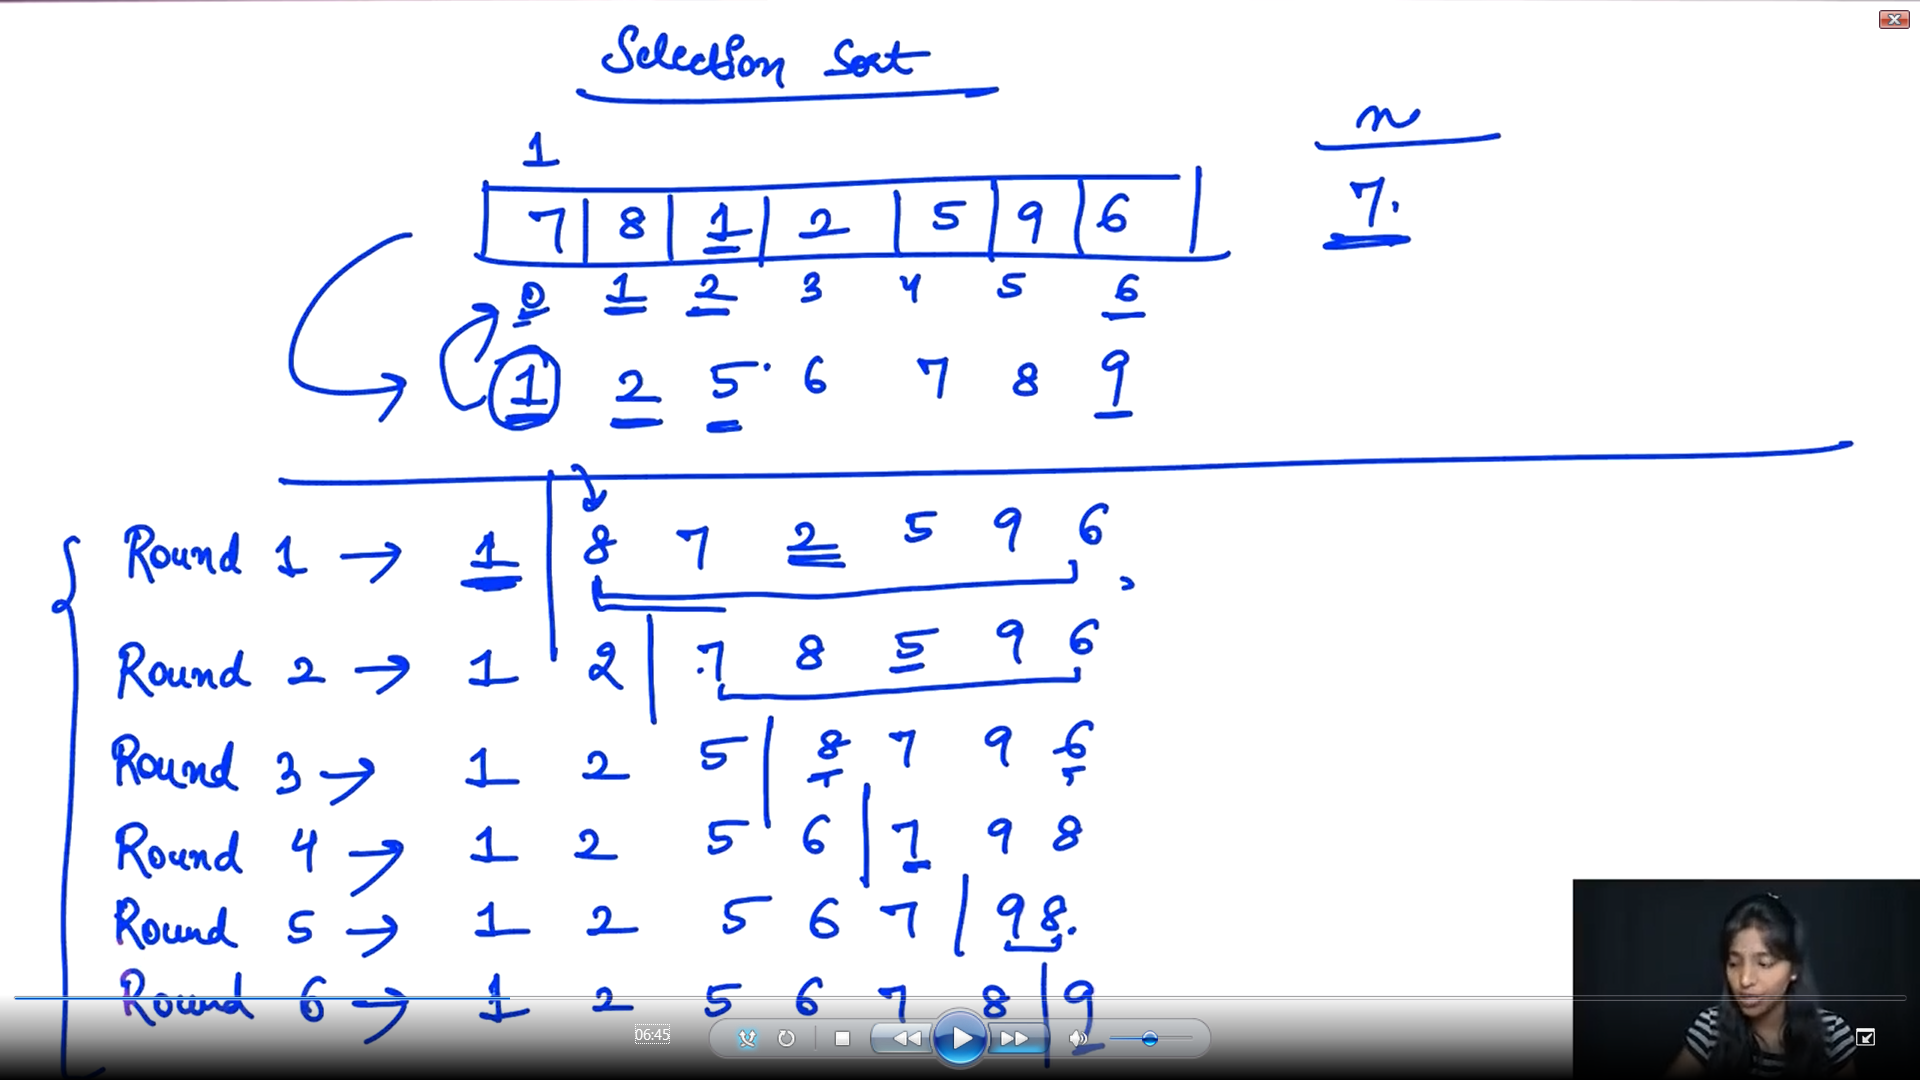 Selection Sort
n
1
7 8 1 2 5 9 6
7.
0 1 2 3 4 5 6
1 2 5 6 7 8 9
Round 1 → 1 8 7 2 5 9 6
Round 2 → 1 2 7 8 5 9 6
Round 3 → 1 2 5 8 7 9 6
Round 4 → 1 2 5 6 7 9 8
Round 5 → 1 2 5 6 7 9 8.
Round 6 → 1 2 5 6 7 8 9
06:45